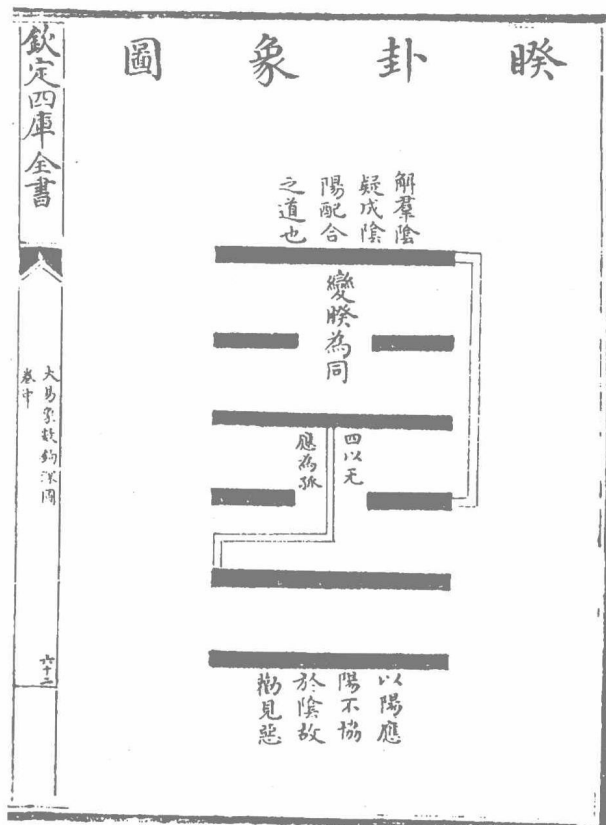 睽卦象圖
解羣陰
疑成陰
陽配合
之道也
變睽為同
四以无
應為孤
以陽應
陽不協
於陰故
勸見惡
欽定四庫全書
大易象數鉤深圖
卷中
六十二